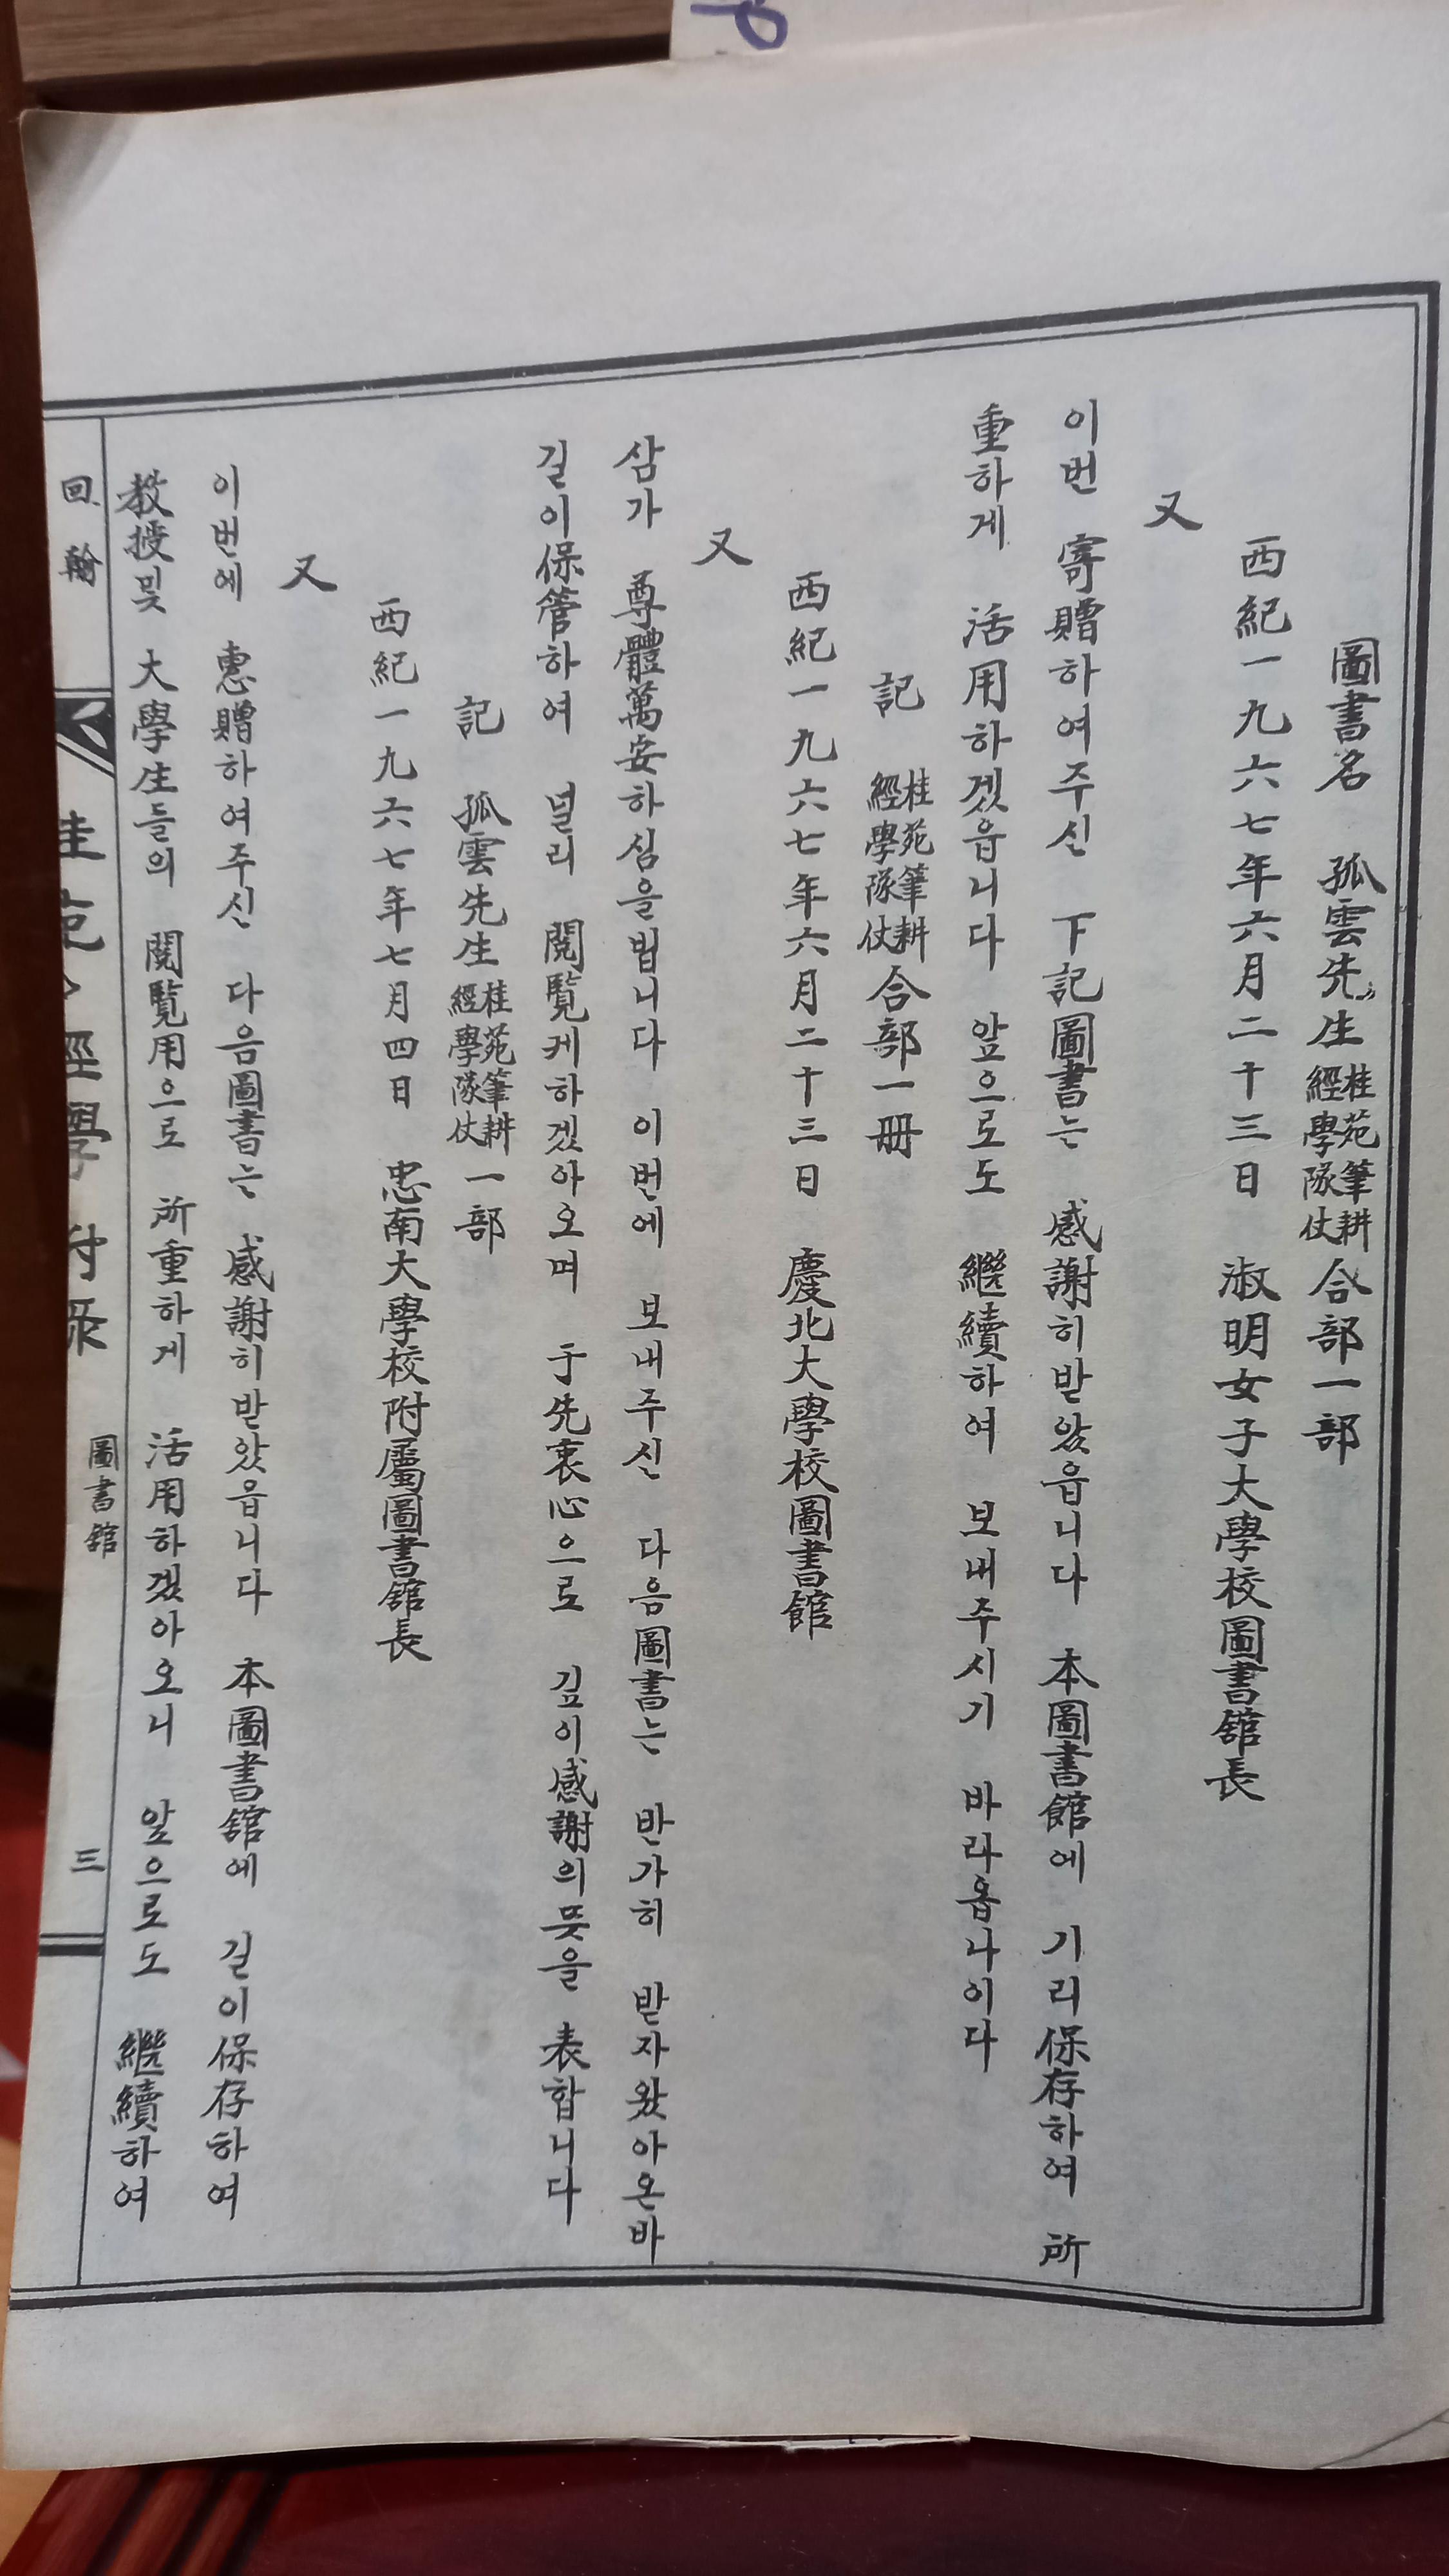 圖書名 孤雲先生 桂苑筆耕 經學隊仗 合部一部
西紀一九六七年六月二十三日 淑明女子大學校圖書舘長
又
이번 寄贈하여주신 下記圖書는 感謝히받았읍니다 本圖書館에 기리保存하여 所
重하게 活用하겠읍니다 앞으로도 繼續하여 보내주시기 바라옵나이다
記 桂苑筆耕 經學隊仗 合部一冊
西紀一九六七年六月二十三日 慶北大學校圖書館
又
삼가 尊體萬安하심을빕니다 이번에 보내주신 다음圖書는 반가히 받자왔아온바
길이保管하여 널리 閱覽케하겠아오며 于先衷心으로 깊이感謝의뜻을 表합니다
記 孤雲先生 桂苑筆耕 經學隊仗 一部
西紀一九六七年七月四日 忠南大學校附屬圖書舘長
又
이번에 惠贈하여주신 다음圖書는 感謝히받았읍니다 本圖書舘에 길이保存하여
敎授및 大學生들의 閱覽用으로 所重하게 活用하겠아오니 앞으로도 繼續하여
回翰
圖書舘
三